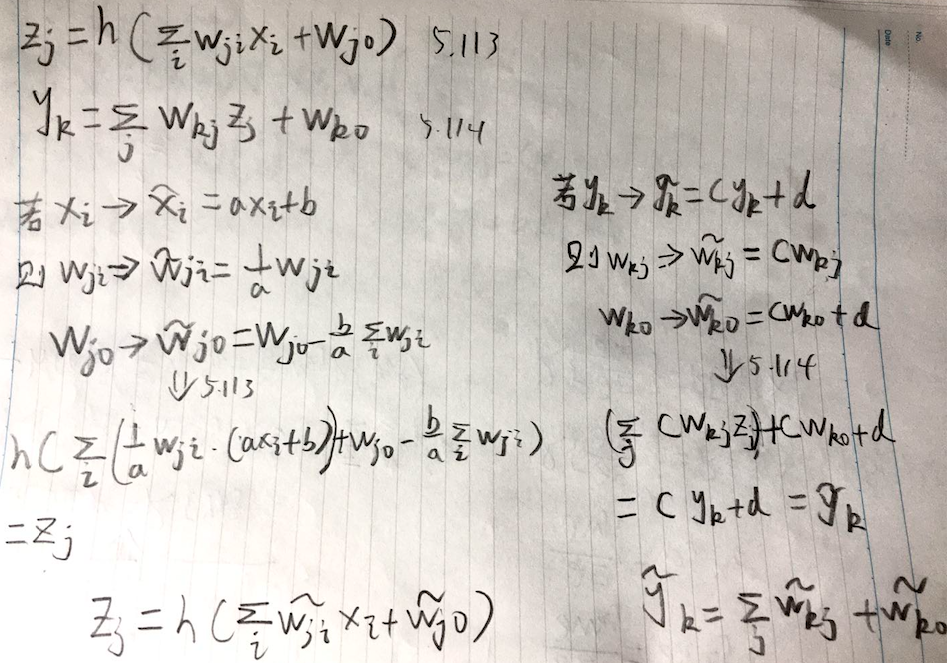 z_j = h(∑_i w_ji x_i + w_j0) 5.113
y_k = ∑_j w_kj z_j + w_k0 5.114
若 x_i → x̃_i = ax_i+b
则 w_ji ⇒ w̃_ji = 1/a w_ji
w_j0 → w̃_j0 = w_j0 - b/a ∑_i w_ji
⇓ 5.113
h(∑_i (1/a w_ji · (ax_i+b)) + w_j0 - b/a ∑_i w_ji)
= z_j
z_j = h(∑_i w̃_ji x_i + w̃_j0)
若 y_k → ỹ_k = cy_k + d
则 w_kj ⇒ w̃_kj = cw_kj
w_k0 → w̃_k0 = cw_k0 + d
⇓ 5.114
(∑_j cw_kj z_j) + cw_k0 + d
= c y_k + d = ỹ_k
ỹ_k = ∑_j w̃_kj + w̃_k0
No.
Date